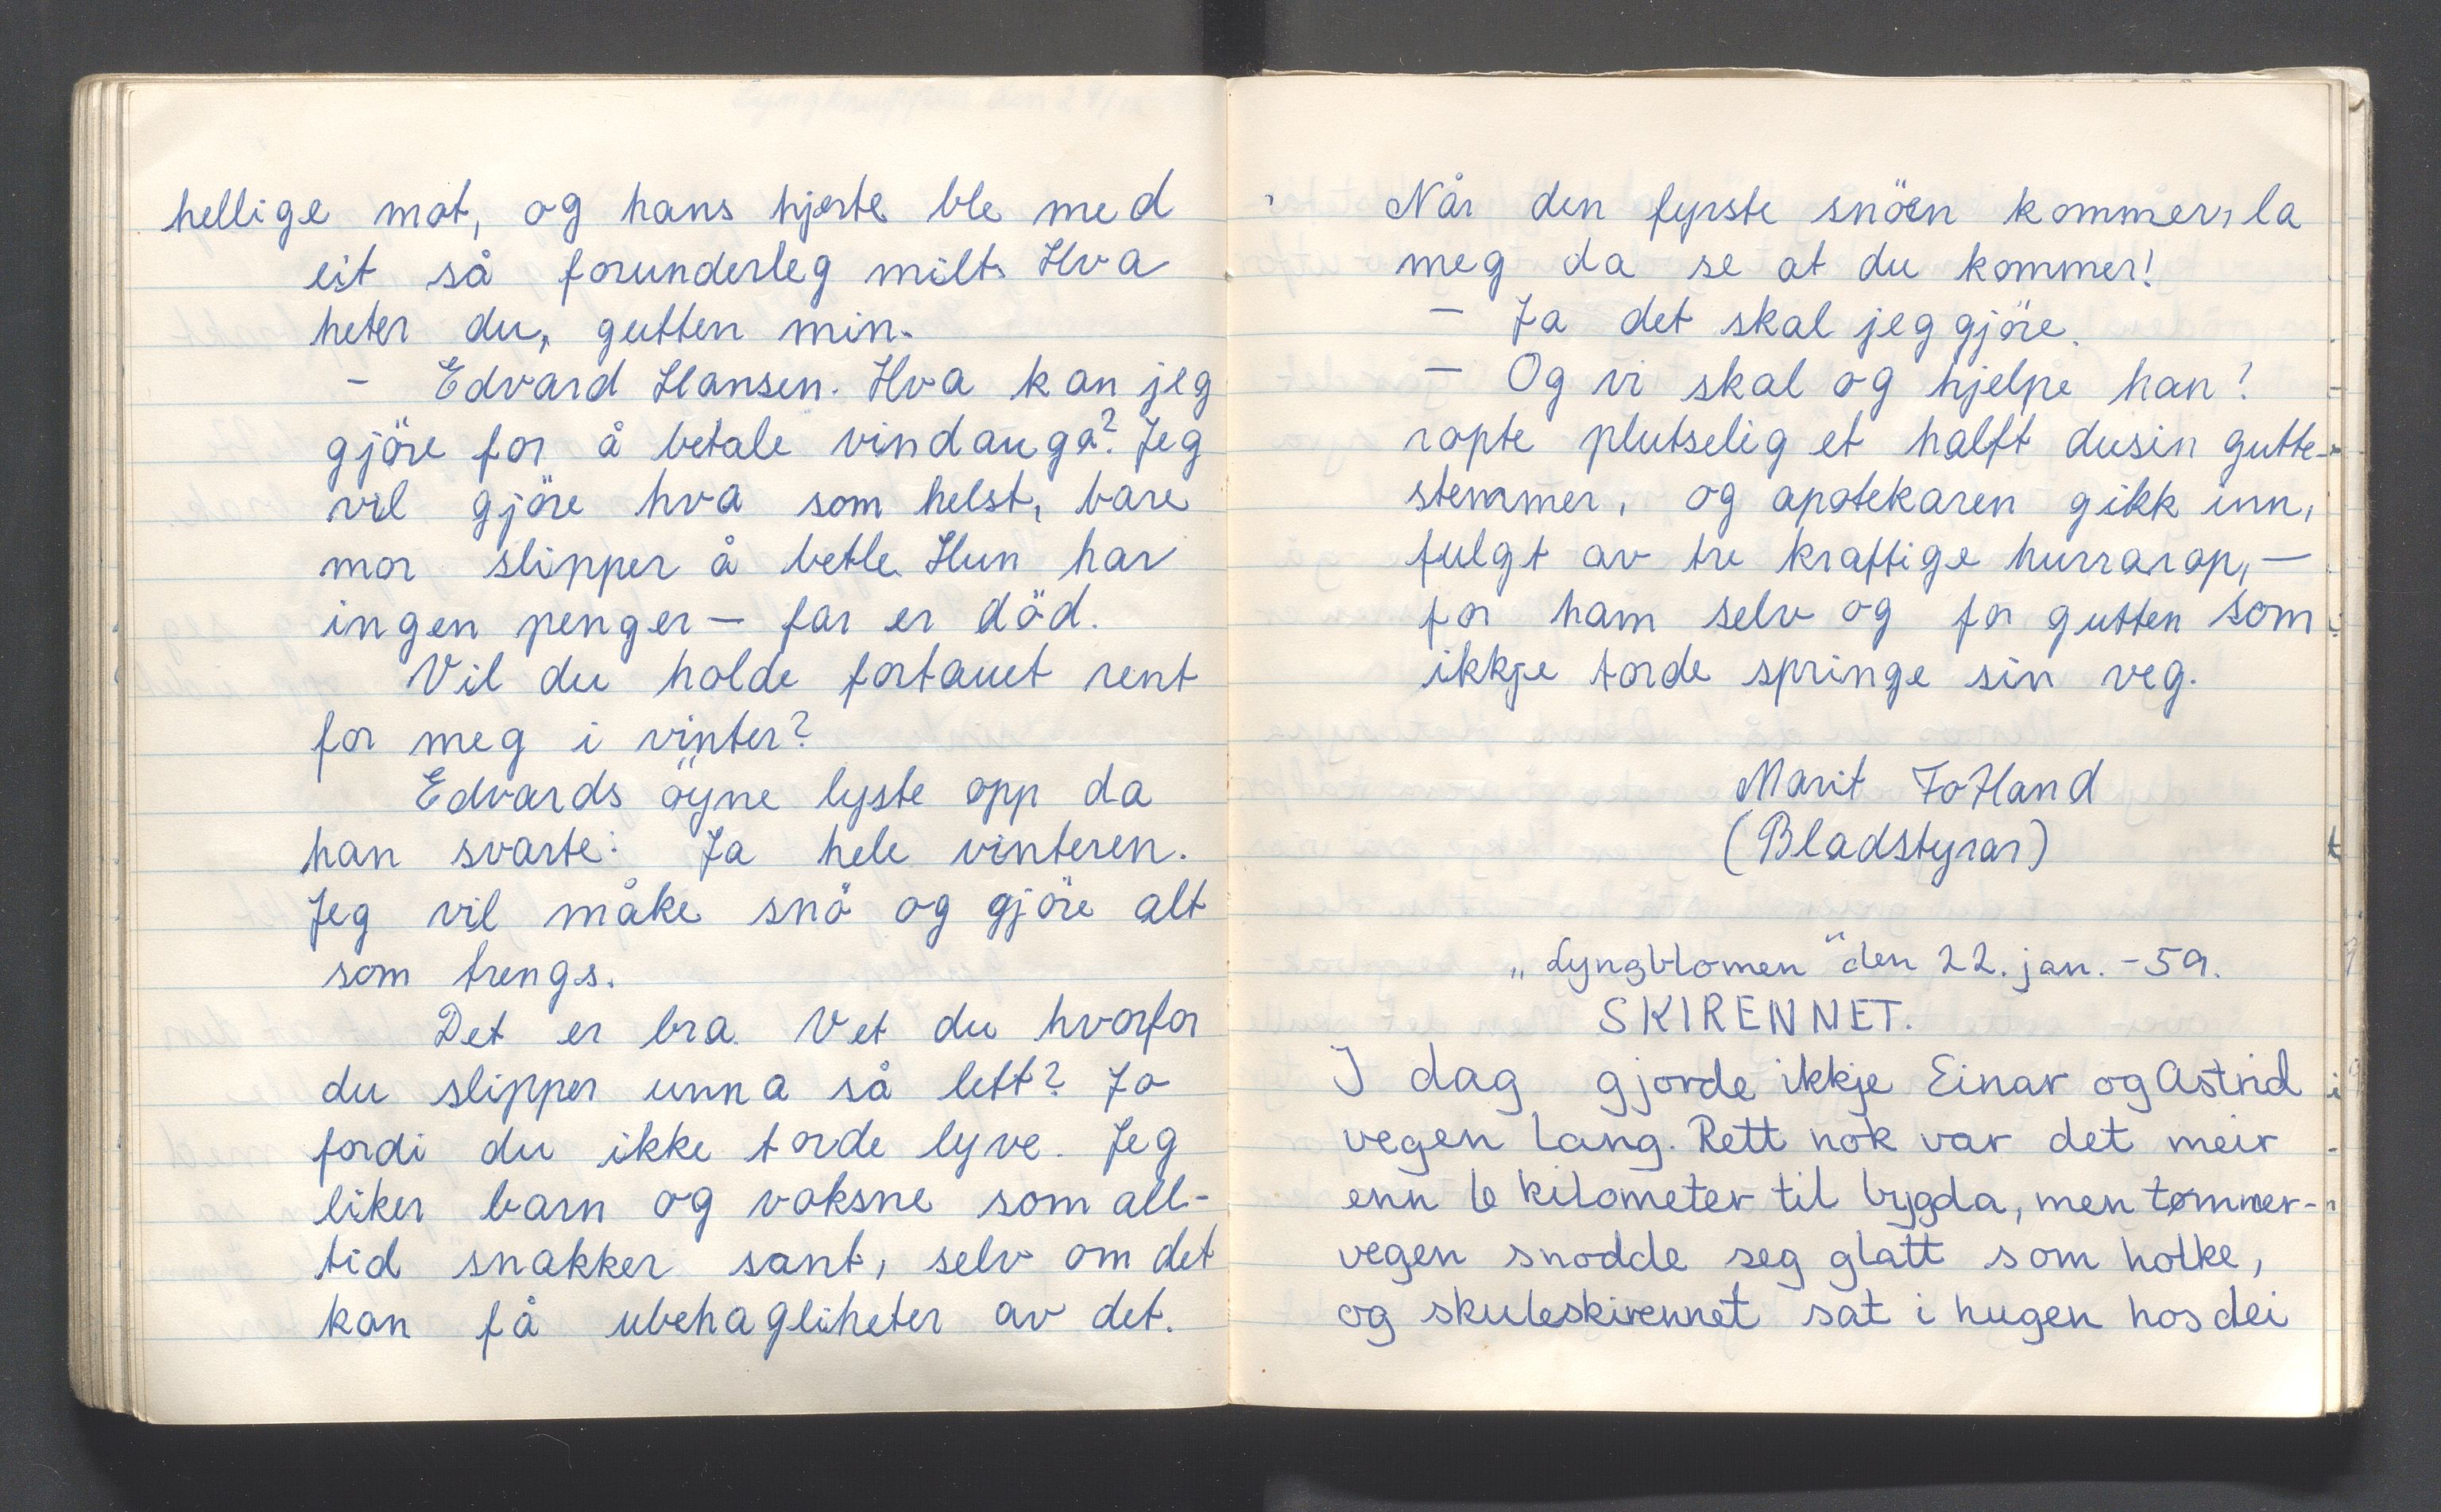 hellige mot, og hans hjerte ble med
eit så forunderleg milt. Hva
heter du, gutten min.
- Edvard Hansen. Hva kan jeg
gjöre for å betale vindauga? Jeg
vil gjöre hva som helst, bare
mor slipper å betle. Hun har
ingen penger — far er död.
Vil du holde fortauet rent
for meg i vinter?
Edvards öyne lyste opp da
han svarte: Ja hele vinteren.
Jeg vil måke snö og gjöre alt
som trengs.
Det er bra. Vet du hvorfor
du slipper unna så lett? Jo
fordi du ikke torde lyve. Jeg
liker barn og voksne som all-
tid snakker sant, selv om det
kan få ubehagliheter av det.
Når den fyrste snöen kommer, la
meg da se at du kommer!
— Ja det skal jeg gjöre.
— Og vi skal og hjelpe han!
ropte plutselig et halft dusin gutte-
stemmer, og apotekaren gikk inn,
fulgt av tre kraftige hurrarop, —
for ham selv og for gutten som
ikkje torde springe sin veg.
Marit Fotland
(Bladstyrar)
„Lyngblomen" den 22. jan. - 59.
SKIRENNET.
I dag gjorde ikkje Einar og Astrid
vegen lang. Rett nok var det meir
enn 6 kilometer til bygda, men tømmer-
vegen snodde seg glatt som holke,
og skuleskirennet sat i hugen hos dei